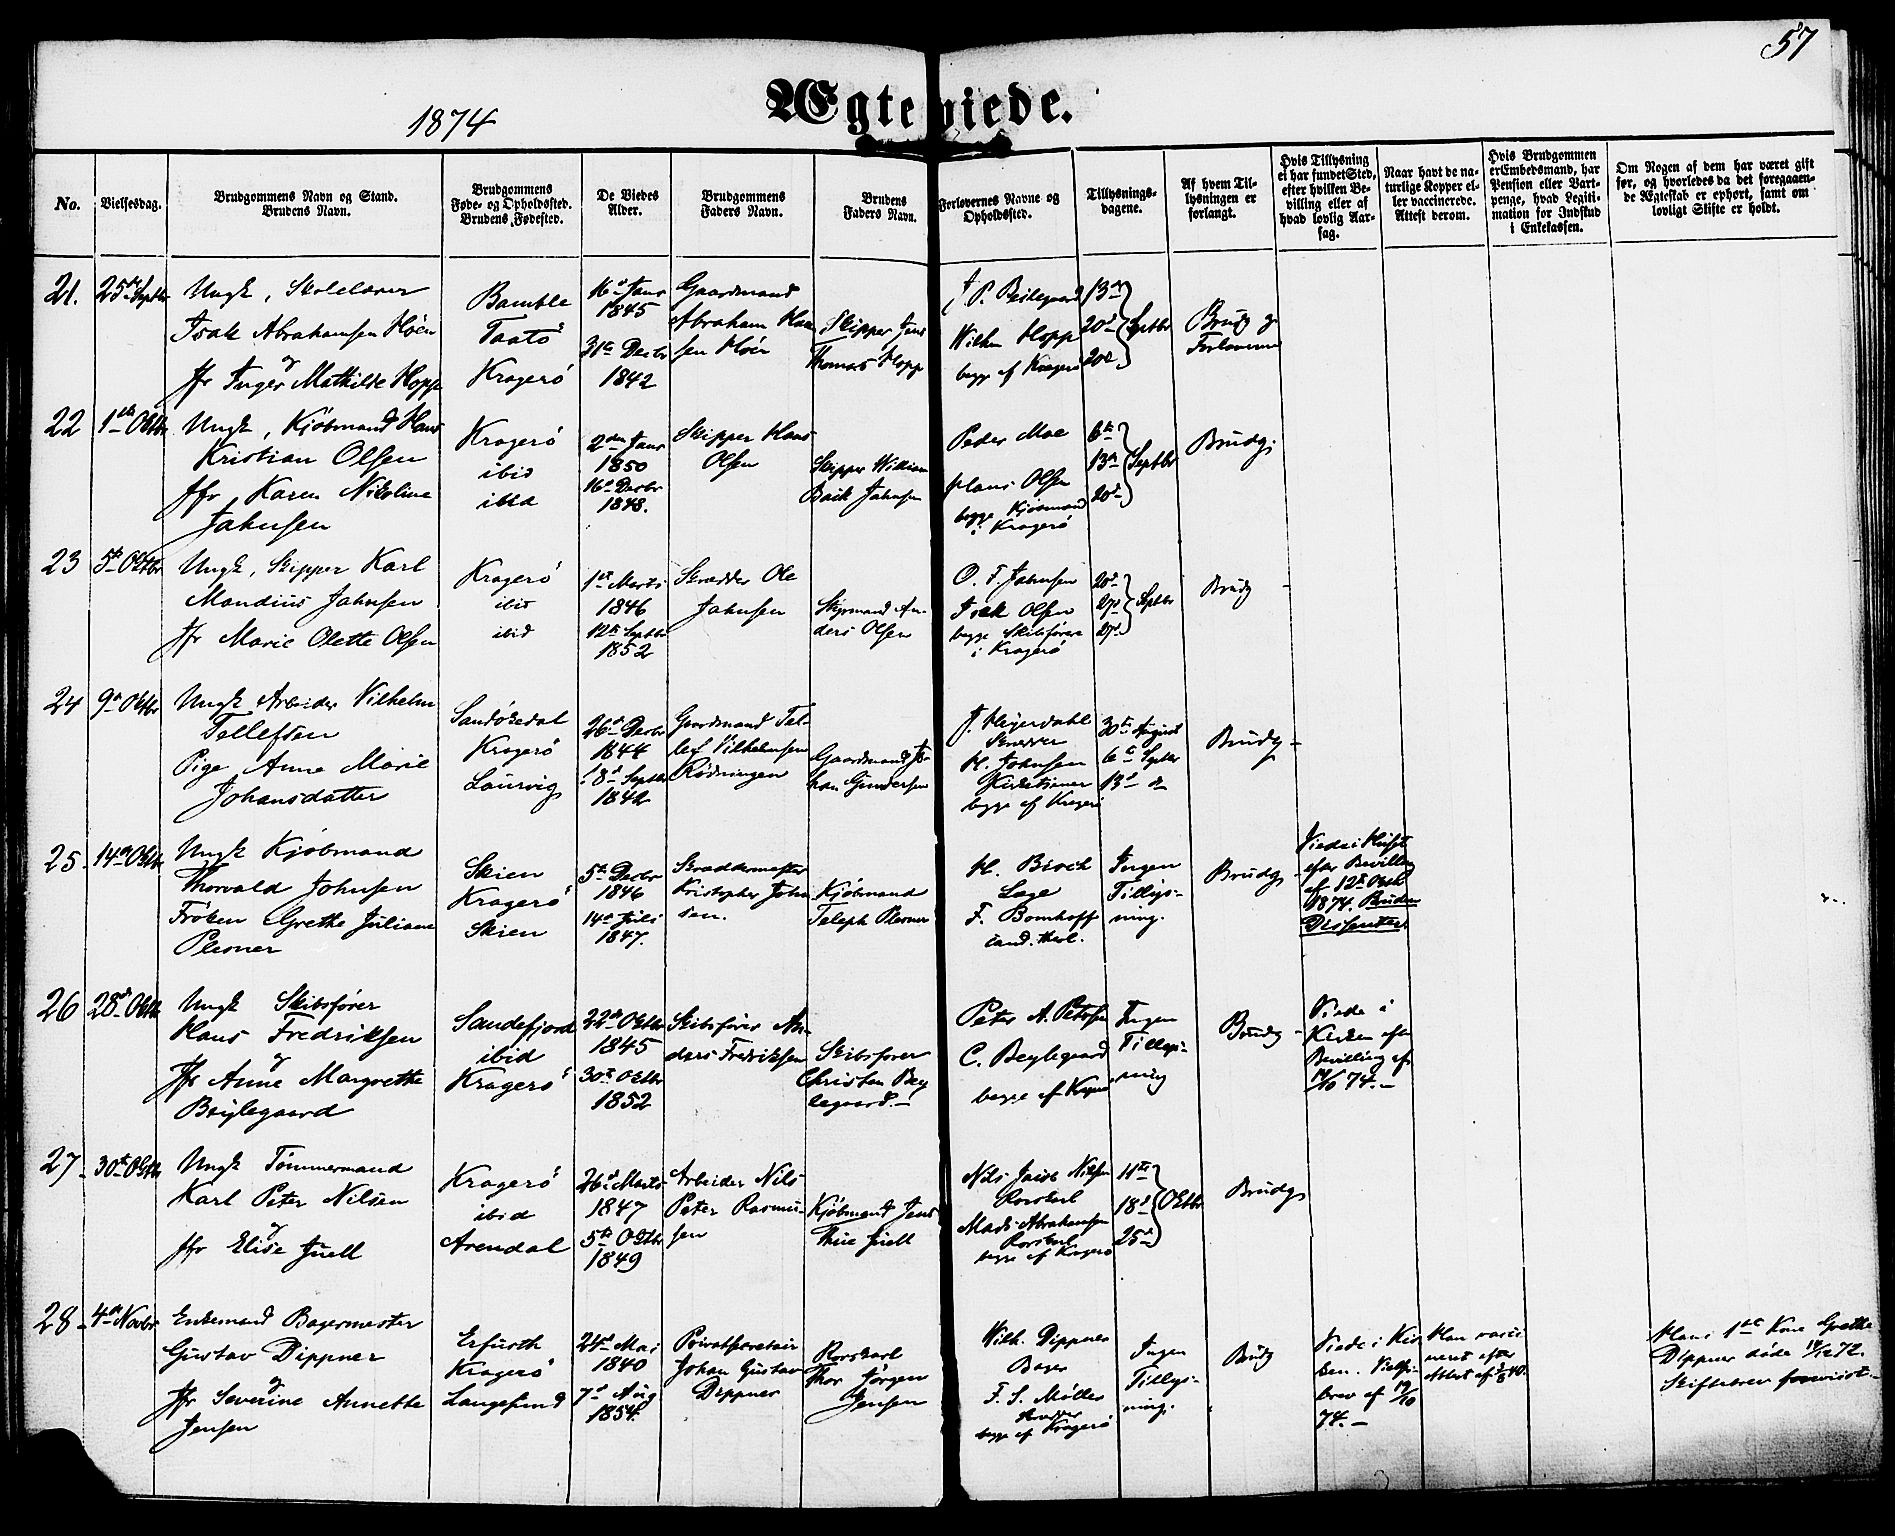 57
1874
Ægteviede.
No.
Vielsesdag.
Brudgommens Navn og Stand.
Brudens Navn.
Brudgommens
Føde- og Opholdssted.
Brudens Fødested.
De Viedes
Alder.
Brudgommens
Faders Navn.
Brudens
Faders Navn.
Forlovernes Navne og
Opholdssted.
Tillysnings-
dagene.
Af hvem Til-
lysningen er
forlangt.
Hvis Tillysning
ei har fundet Sted,
efter hvilken Be-
villing eller af
hvad lovlig Aar-
sag.
Naar havt de na-
turlige Kopper el-
ler vaccinerede.
Attest derom.
Hvis Brudgommen
er Embedsmand, har
Pension eller Vart-
penge, hvad Legiti-
mation for Indskud
i Enkekassen.
Om Nogen af dem har været gift
før, og hvorledes da det foregaaen-
de Ægteskab er ophørt, samt om
lovligt Skifte er holdt.
21.
25de Septbr
Ungk, Skolelærer
Isak Abrahamsen Höen
og
Jfr Inger Mathilde Hopp
Bamble
Taatö
Kragerö
16de Janr
1845
31te Decbr
1842
Gaardmand
Abraham Han
sen Höen
Skipper Jens
Thomas Hopp
J. P. Beilegaard
Wilhm Hopp
begge af Kragerö
13de
20de
20de
Septbr
Brudg og
Forloverne
22
1ste Oktbr
Ungk, Kjöbmand Hans
Kristian Olsen
Jfr, Karen Nikoline
Jahnsen
Kragerö
ibid
ibid
2den Janr
1850
16de Decbr
1848.
Skipper Hans
Olsen
Skipper William
Jahnsen
Peder Moe
Hans Olsen
begge Kjöbmænd
i Kragerö
6te
13de
20de
Septbr
Brudg.
23
5te Oktbr
Ungk, Skipper Karl
Mandius Jahnsen
Jfr Marie Olette Olsen
Kragerö
ibid
ibid
1ste Marts
1846
12te Septbr
1852
Skrædder Ole
Jahnsen
Styrmand An-
ders Olsen
O. T. Jahnsen
Isak Olsen
begge Skibsförere
i Kragerö
20de
27de
27de
Septbr
Brudg
24
9de Oktbr
Ungk Arbeider Vilhelm
Tellefsen
Pige Anne Marie
Johansdatter
Sandökedal
Kragerö
Laurvig
26de Decbr
1844
18de Septbr
1842
Gaardmand Tel-
lef Vilhelmsen
Rödningen
Gaardmand Jo-
han Gundersen
J. Heyerdahl
H. Johnsen
Kirketjener
begge af Kragerö
30te August
6te Septbr
13de do
Brudg-
25.
14de Oktbr
Ungk Kjöbmand
Thorvald Johnsen
Fröken Grethe Juliane
Plesner
Skien
Kragerö
Skien
5te Decbr
1846
14de Juli
1847.
Skræddermester
Kristopher John
sen.
Kjöbmand
Teleph Plesner
H. Bioch
Læge
F. Bomhoff
cand. theol.
Ingen
Tillys-
ning.
Brudg
Viede i Huset
efter Bevilling
af 12te Oktbr
1874. Bruden
Dissenter.
26
28de Oktbr
Ungk Skibsförer
Hans Fredriksen
og
Jfr Anne Margrethe
Beylegaard
Sandefjord
ibid
Kragerö
22de Oktbr
1845
30te Oktbr
1852
Skibsförer An-
ders Fredriksen
Skibsförer
Christen Bey
legaard.-
Peter A. Petersen
C. Beylegaard
begge af Kragerö
Ingen
Tillys-
ning
Brudg-
Viede i
Kirken efter
Bevilling af
14/10 74.-
27.
30te Oktbr
Ungk Tömmermand
Karl Peter Nilsen
og
Jfr Elise Juell
Kragerö
ibid
Arendal
26de Marts
1847
5te Oktbr
1849
Arbeider Nils
Peter Rasmus-
sen
Kjöbmand Jens
Thue Juell
Nils Nilsen
Mads Abrahamsen
begge af Kragerö
11te
18de
25de
Oktbr
Brudg
28.
4de Novbr
Enkemand Bagermester
Gustav Dippner
og
Jfr Severine Annette
Jensen
Erfurth
Kragerö
Langesund
24de Mai
1840
7de Aug
1854.
Privatsecretair
Johan Gustav
Dippner
Thor Jörgen
Jensen
Wilh. Dippner
Bager
F. S. Möller
begge af Kragerö
Ingen
Tillys-
ning.
Brudg
Viede i Kir
ken. Vielses-
brev af 19/10
74.-
Han vacci
neret efter
Attest af
Hans 1ste Kone Grethe
Dippner döde 72.
Skiftebrev forevist.-